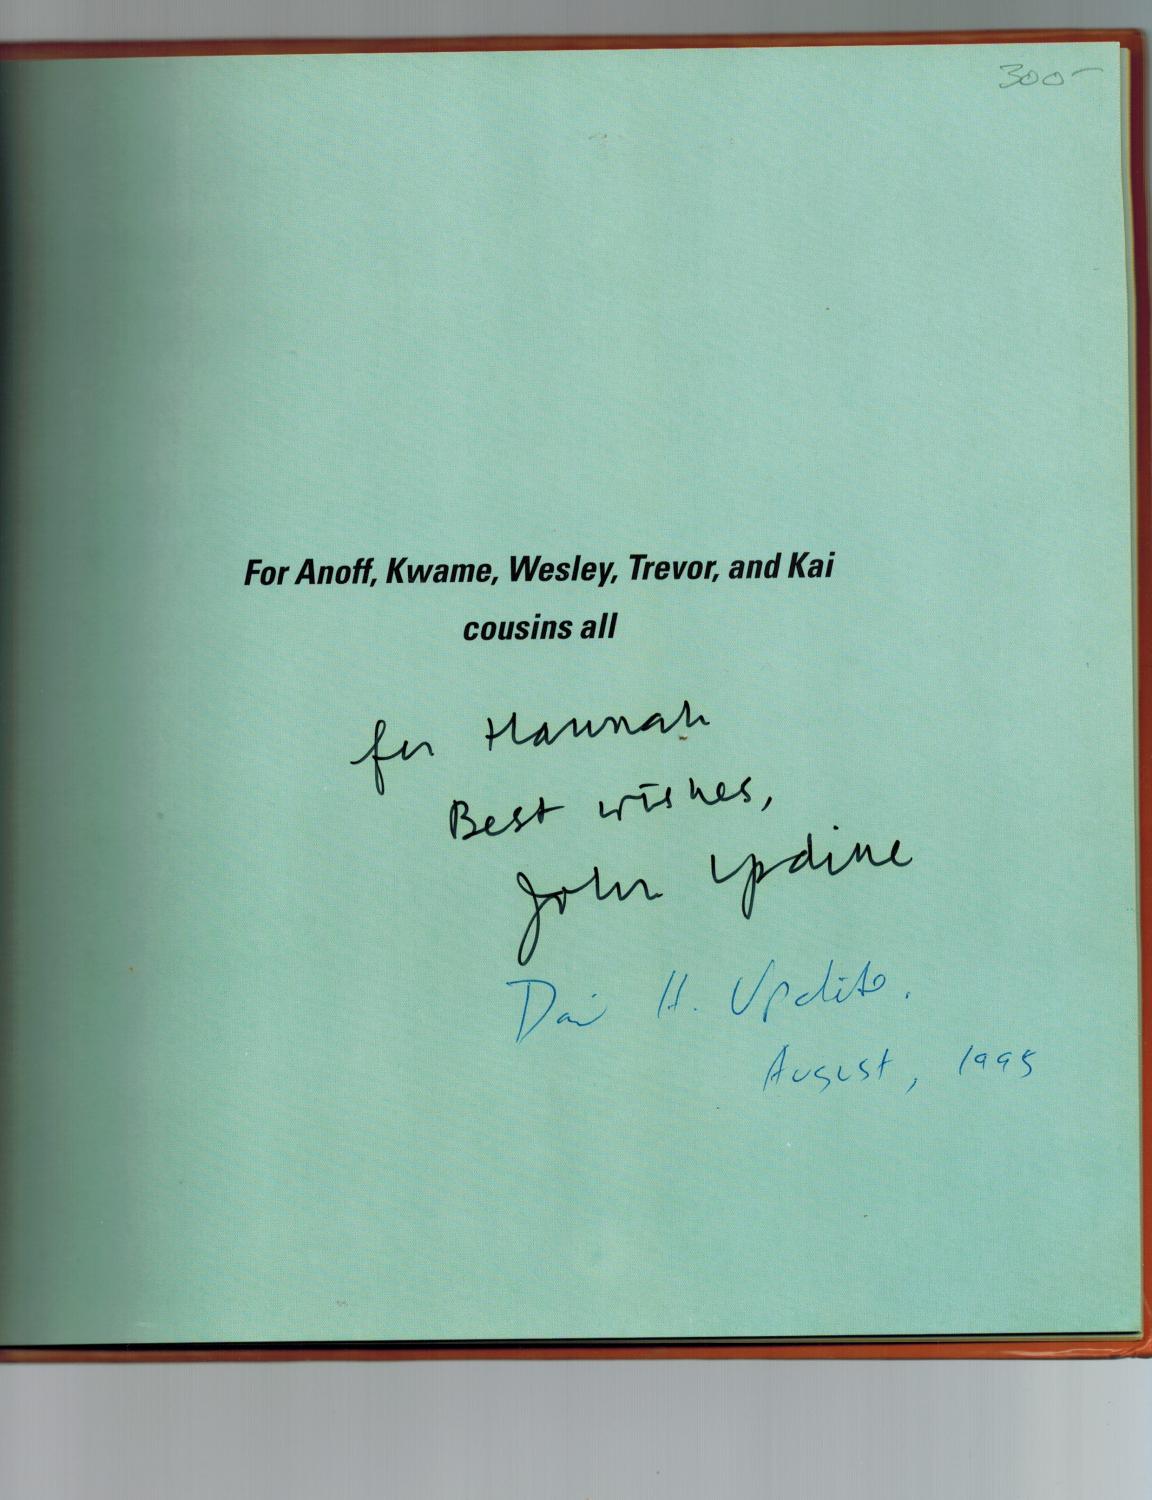 300-
For Anoff, Kwame, Wesley, Trevor, and Kai
cousins all
for Hannah
Best wishes,
John Updike
David H. Updike.
August, 1995